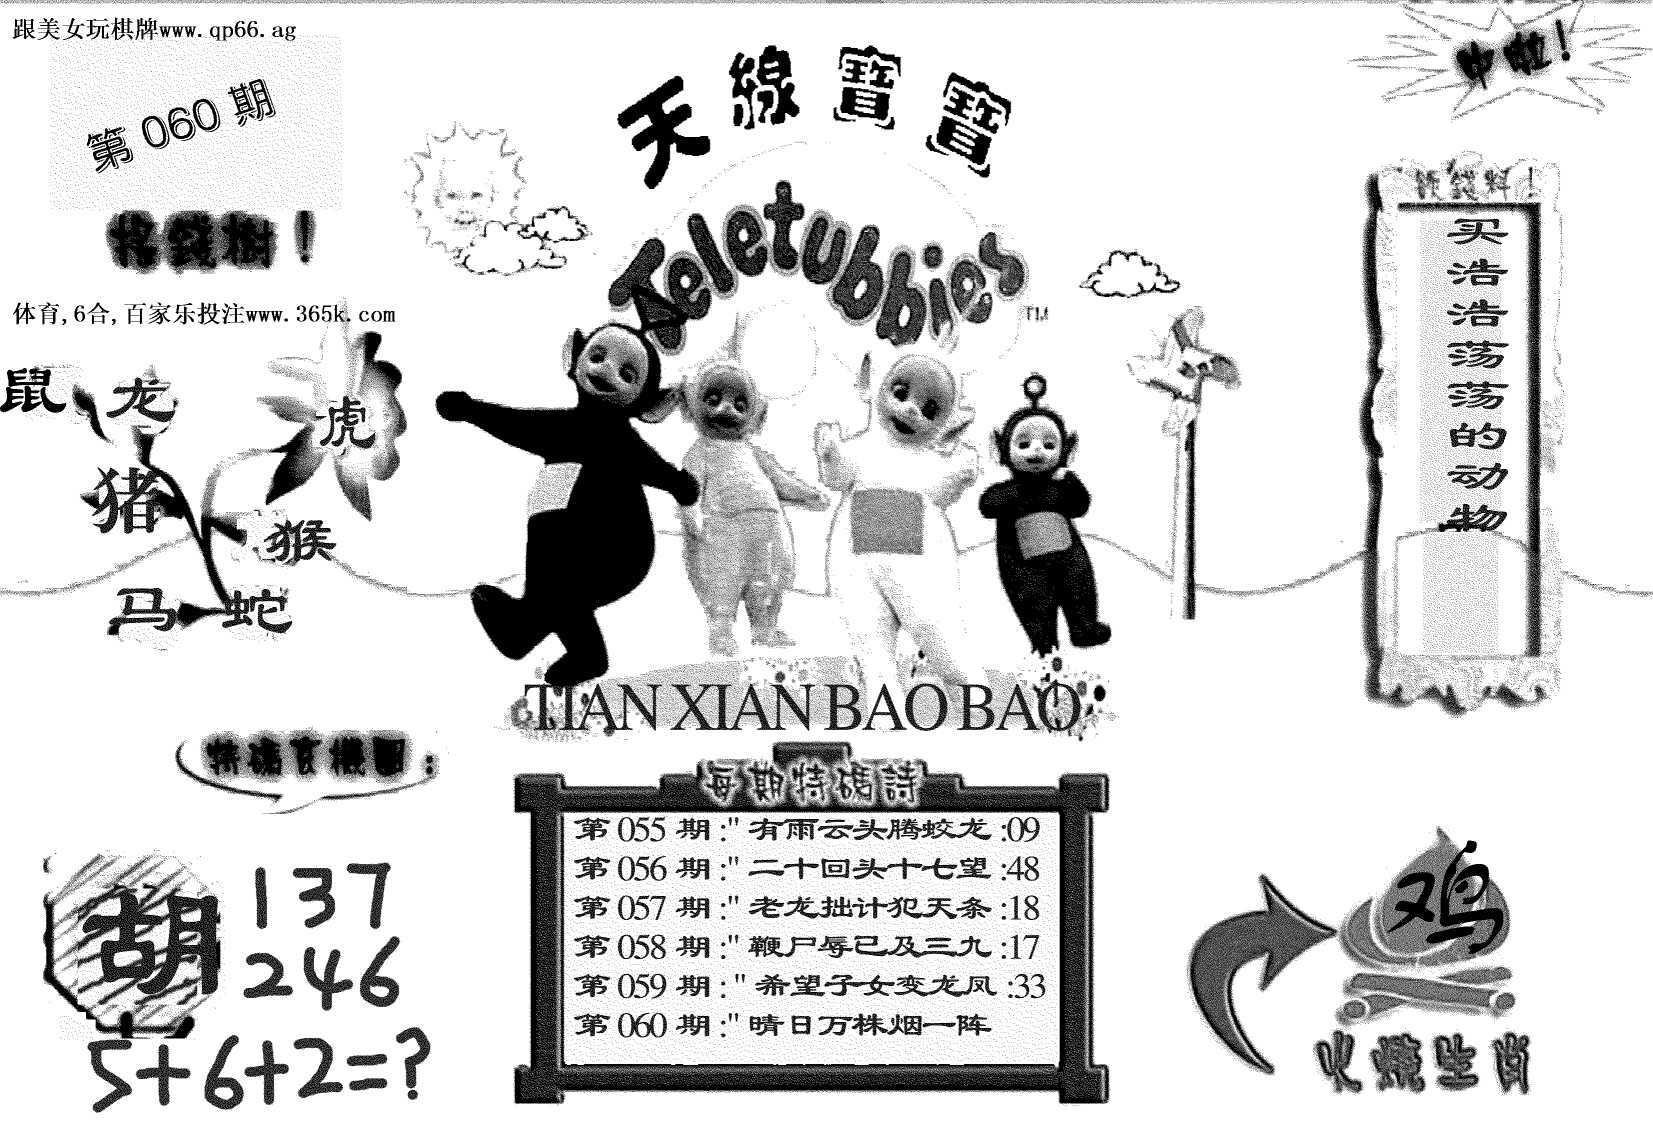 跟美女玩棋牌www.qp66.ag
第 060 期
摇錢樹！
体育,6合,百家乐投注www.365k.com
鼠
龙
虎
猪
猴
马
蛇
天線寶寶
Teletubbies TM
TIAN XIAN BAO BAO
中啦！
买浩浩荡荡的动物
特碼玄機圖：
胡
137
246
5+6+2=?
每期特碼詩
第 055 期:"有雨云头腾蛟龙:09
第 056 期:"二十回头十七望:48
第 057 期:"老龙拙计犯天条:18
第 058 期:"鞭尸辱已及三九:17
第 059 期:"希望子女变龙凤:33
第 060 期:"晴日万株烟一阵
鸡
火燒生肖